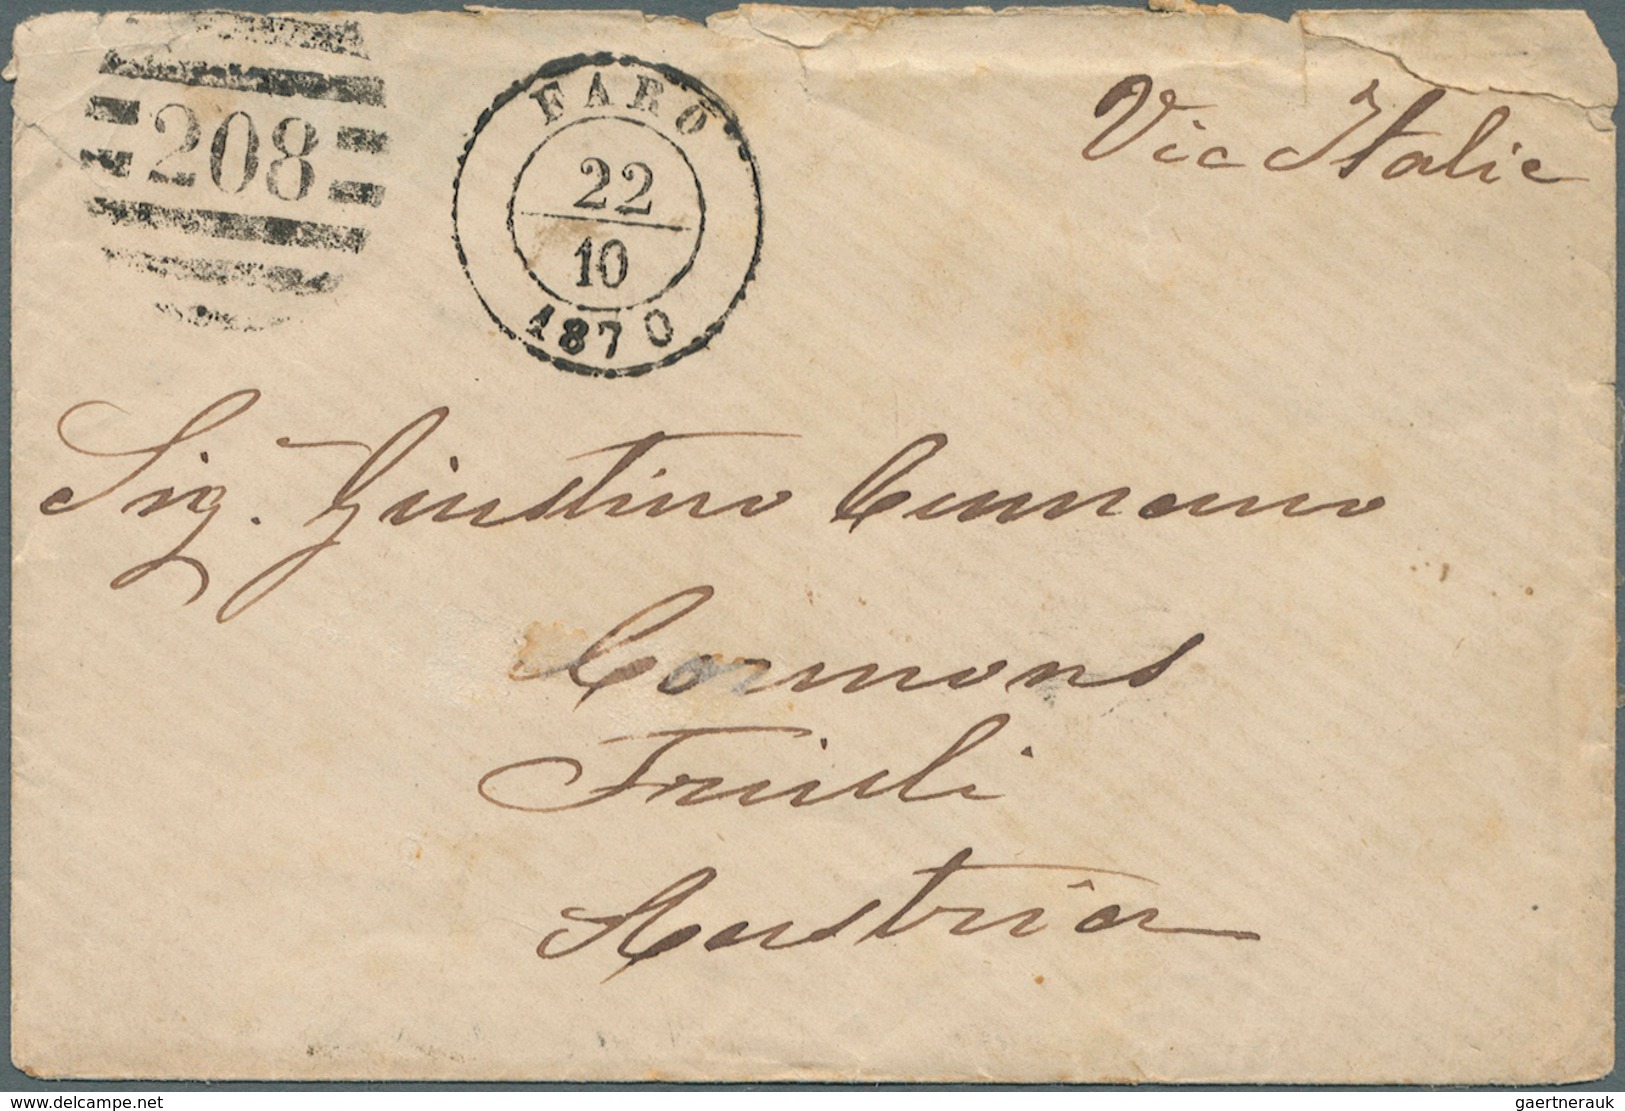 208
FARO
22
10
1870
Via Italie
Sig. Giustino Cumano
Cormons
Friuli
Austria
© www.delcampe.net
gaertnerauk